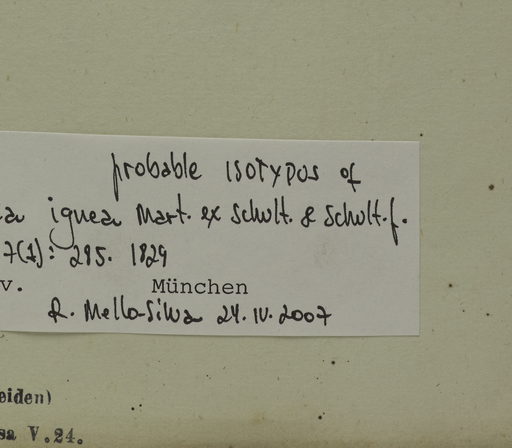 probable ISOTYPUS of
a ignea Mart. ex Schult. & Schult.f.
7(1): 295. 1829
v. München
R. Mello-Silva 24.IV.2007
eiden)
sa V.24.